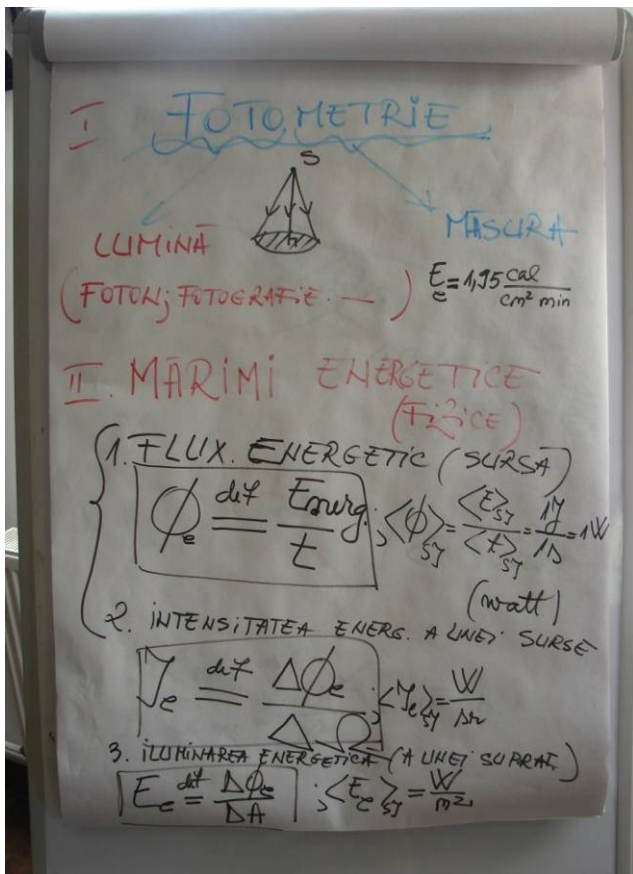 I FOTOMETRIE
S
LUMINĂ
MĂSURA
(FOTONI; FOTOGRAFIE. —)
E_e = 1,95 cal / cm² min
II. MĂRIMI ENERGETICE
(FIZICE)
1. FLUX. ENERGETIC (SURSĂ)
ϕ_e def= Energ. / t ; <ϕ>_SJ = <E>_SJ / <t>_SJ = 1J / 1s = 1W
(watt)
2. INTENSITATEA ENERG. A UNEI SURSE
I_e def= Δϕ_e / ΔΩ ; <I_e>_SJ = W / sr
3. ILUMINAREA ENERGETICĂ (A UNEI SUPRAF.)
E_e def= Δϕ_e / ΔA ; <E_e>_SJ = W / m²